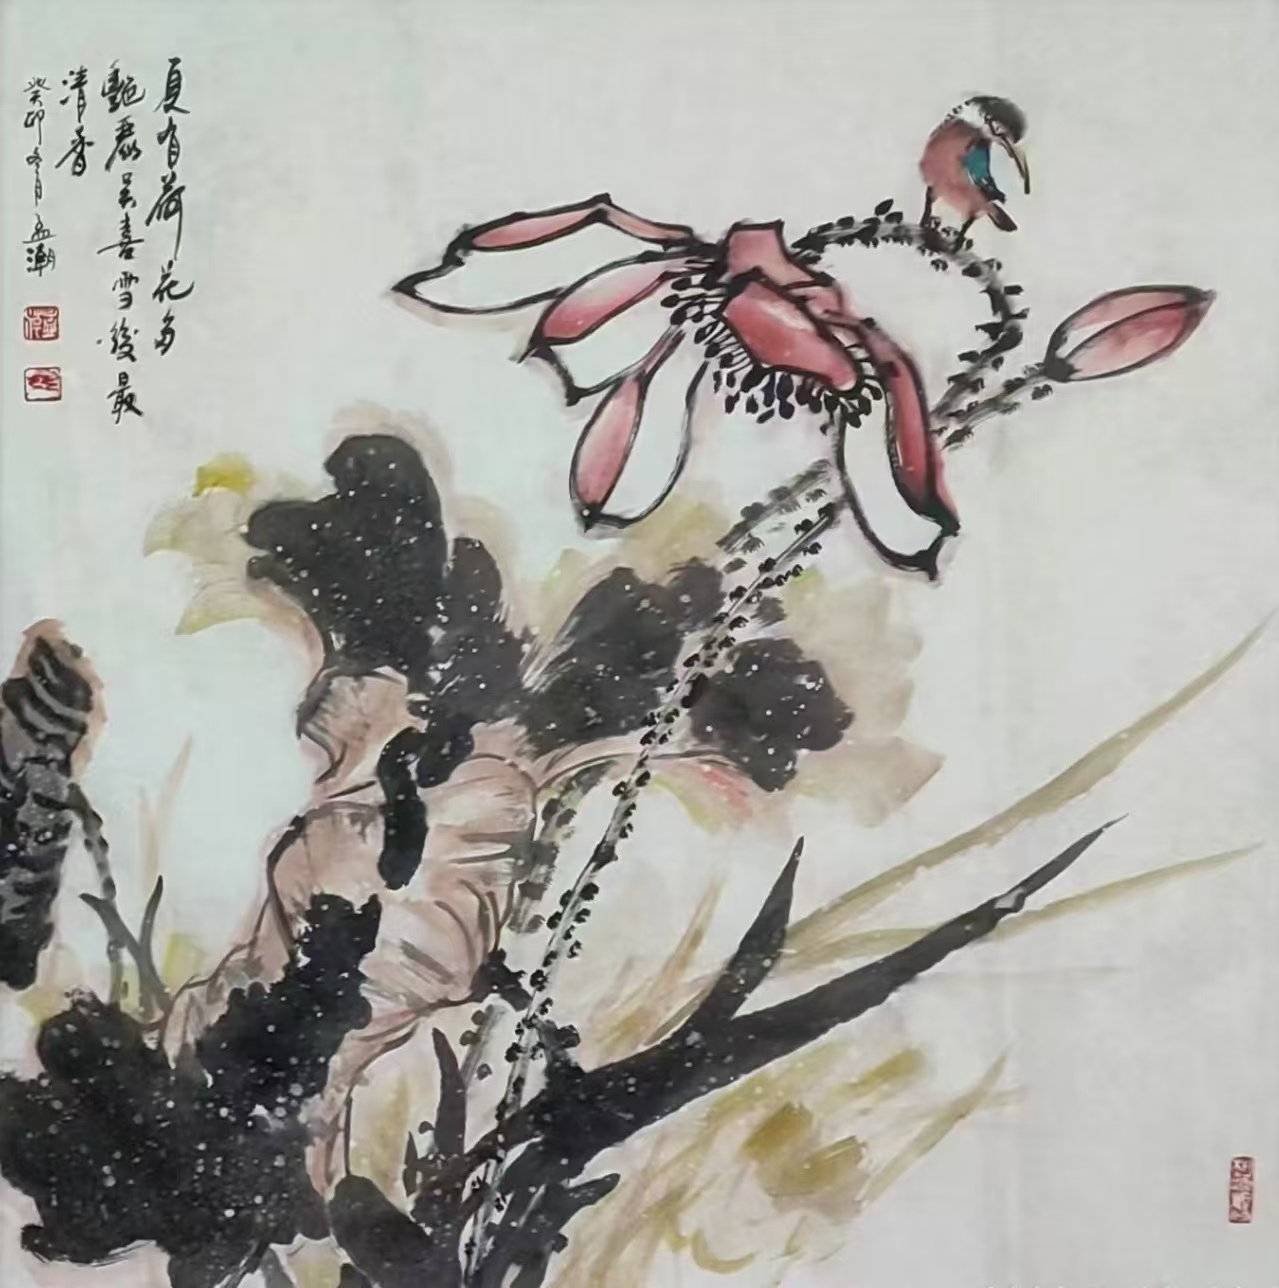 夏有荷花多
艷麗吴喜雪後最
清香
癸卯冬月孟潮